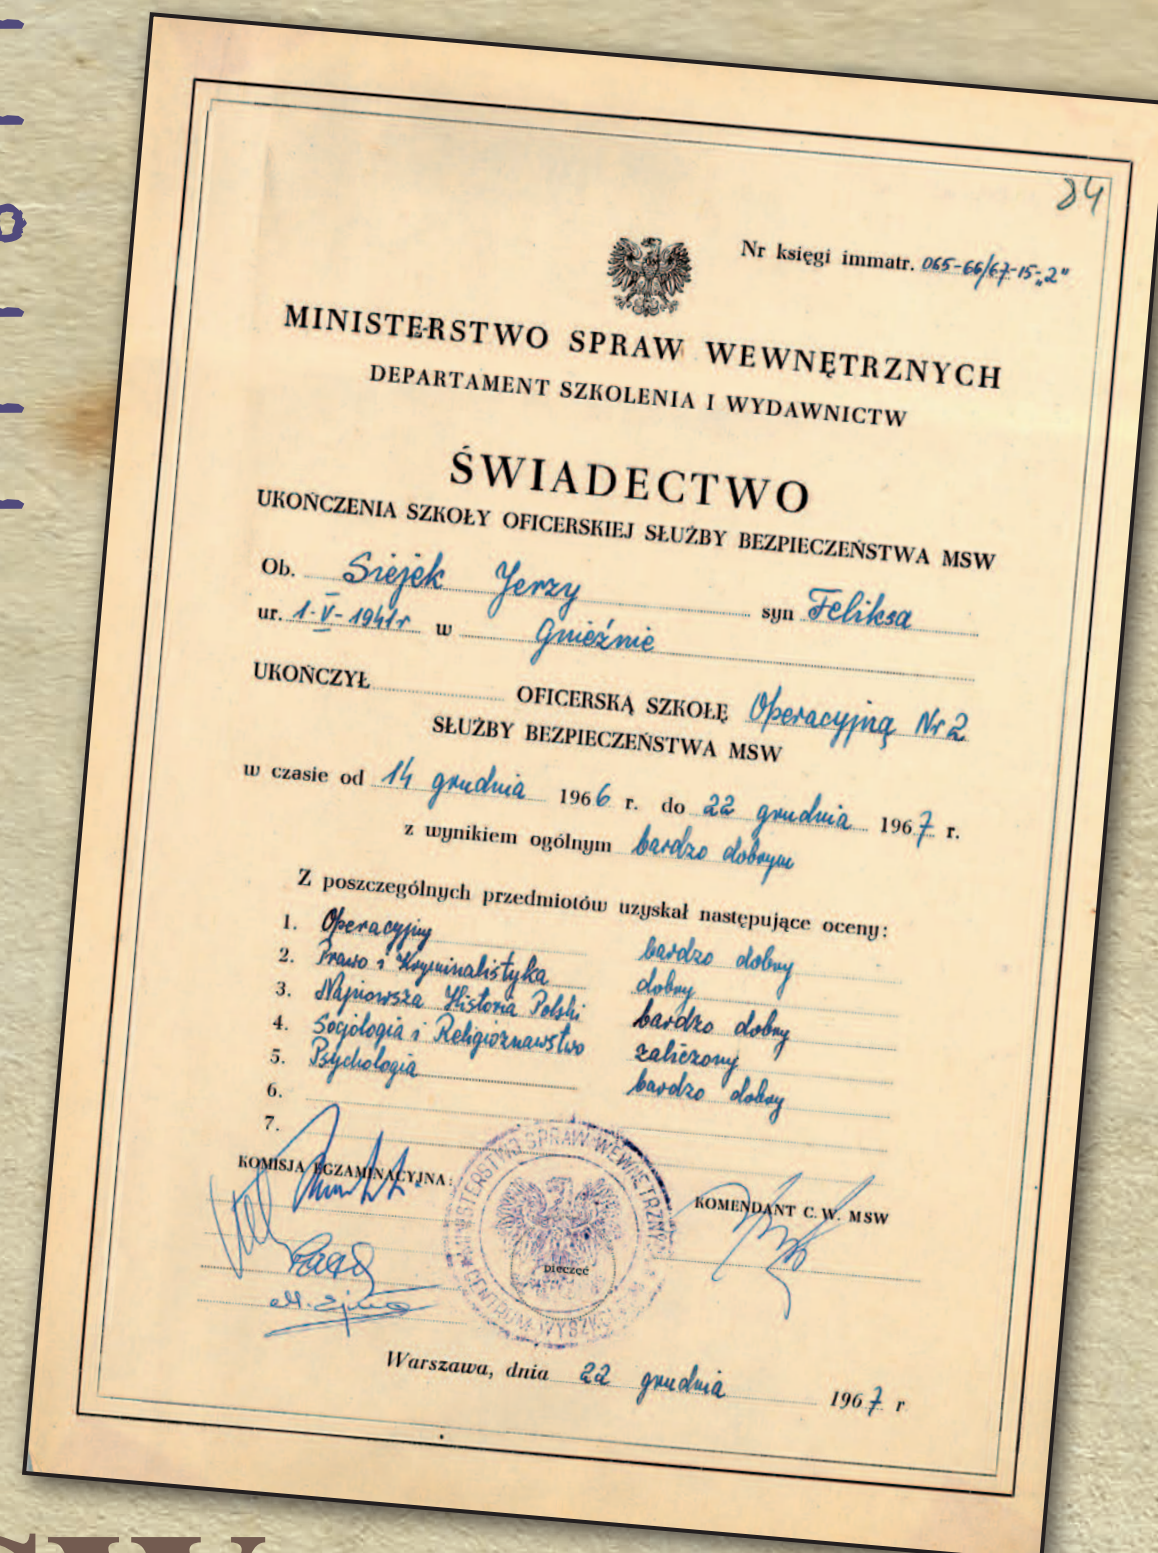 84
Nr księgi immatr. 065-66/67-15-„2"
MINISTERSTWO SPRAW WEWNĘTRZNYCH
DEPARTAMENT SZKOLENIA I WYDAWNICTW
ŚWIADECTWO
UKOŃCZENIA SZKOŁY OFICERSKIEJ SŁUŻBY BEZPIECZEŃSTWA MSW
Ob. Siejek Jerzy syn Feliksa
ur. 1-V-1941r w Gnieźnie
UKOŃCZYŁ OFICERSKĄ SZKOŁĘ Operacyjną Nr 2
SŁUŻBY BEZPIECZEŃSTWA MSW
w czasie od 14 grudnia 1966 r. do 22 grudnia 1967 r.
z wynikiem ogólnym bardzo dobrym
Z poszczególnych przedmiotów uzyskał następujące oceny:
1. Operacyjny bardzo dobry
2. Prawo i Kryminalistyka dobry
3. Najnowsza Historia Polski bardzo dobry
4. Socjologia i Religioznawstwo zaliczony
5. Psychologia bardzo dobry
6.
7.
KOMISJA EGZAMINACYJNA:
KOMENDANT C. W. MSW
MINISTERSTWO SPRAW WEWNĘTRZNYCH
pieczęć
CENTRUM WYSZKOLENIA
Warszawa, dnia 22 grudnia 1967 r